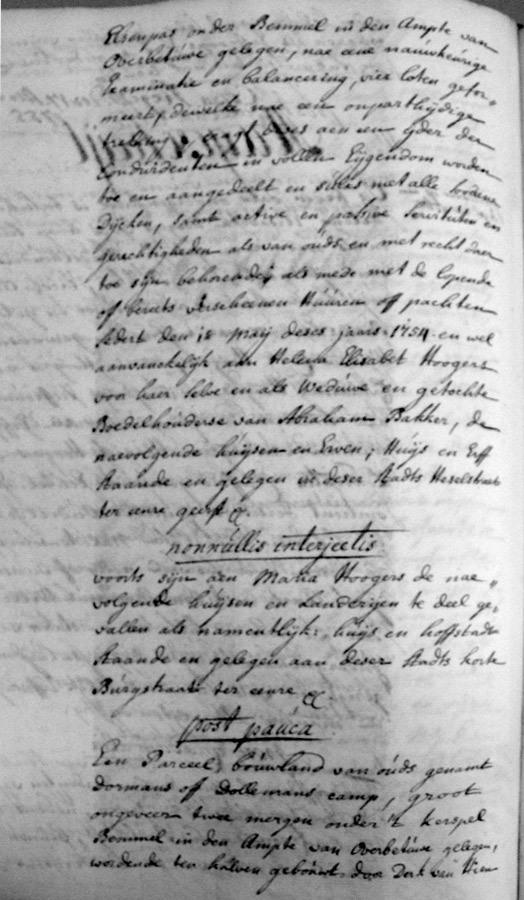 Elsenpas onder Bemmel in den Ampte van
Overbetuwe gelegen, nae eene nauwkeurige
Examinatie en balanceering, vier loten gefor„
meert, dewelke nae een onpartijdige
aen een ijder der
Condividenten in vollen Eijgendom worden
toe en aangedeelt en sulcx met alle
Dijcken, samt active en passive Servitúten en
gerechtigheden als van oúds en met recht daer
toe sijn behorende, als mede met de lopende
off bereets verscheenen Húúren off pachten
sedert den 18 Maij deses jaars 1754 en wel
aanvanckelijk aan Helena Elisabet Hoogers
voor haer selve en als Wedúwe en getochte
Boedelhouderse van Abraham Bakker, de
naevolgende húijsen en Erven; Húijs en Erff
staande en gelegen in deser stadts Heselstraete
ter eenre geerft &.
nonnúllis interjectis.
voorts sijn aen Maria Hoogers de nae„
volgende húijsen en Landerijen te deel ge„
vallen als namentlijk: húijs en hoffstadt
staande en gelegen aan deser stadts korte
Búrgstraate ter eenre &.
post paúca.
Een Parceel boúwland van oúds genamt
dormans off Dollemans camp, groot
ongeveer twee mergen onder 't kerspel
Bemmel in den Ampte van Overbetúwe gelegen,
wordende ten halven geboúwt door Derk van